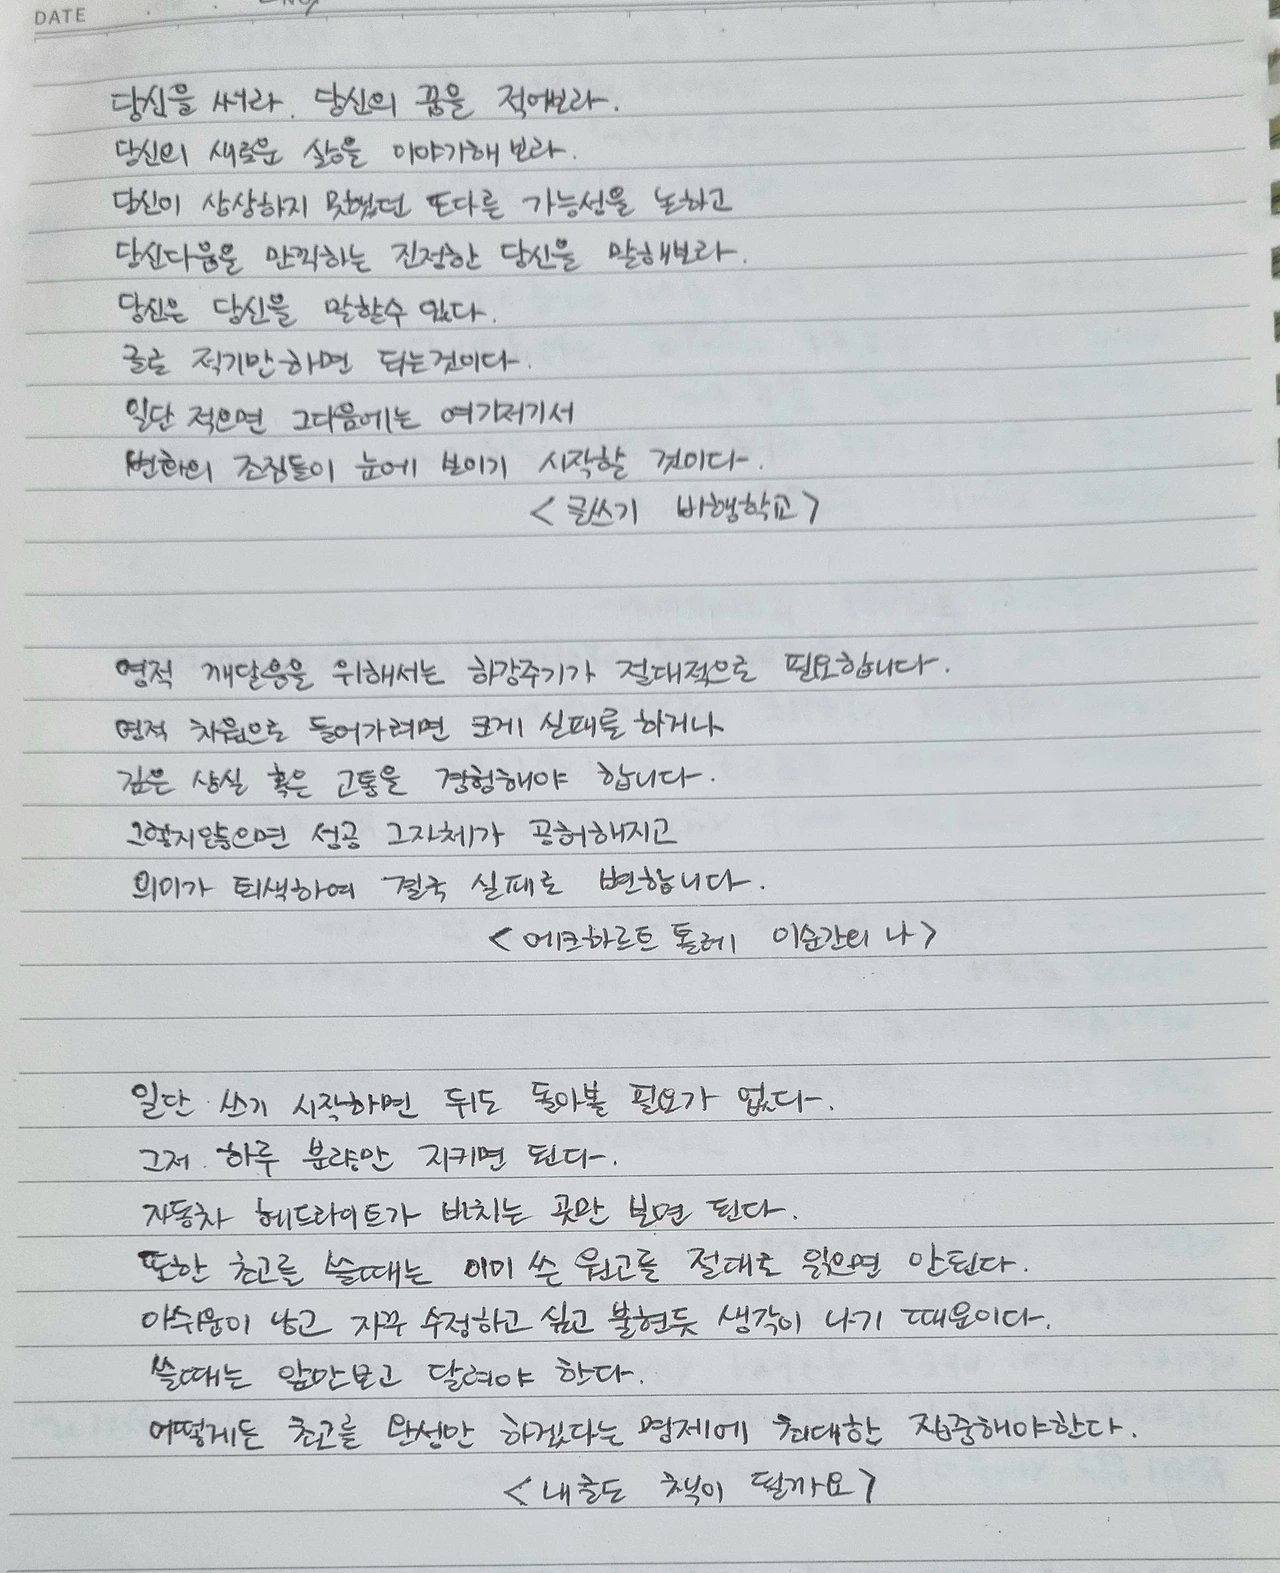 DATE
NO,
당신을 써라. 당신의 꿈을 적어보라.
당신의 새로운 삶을 이야기해 보라.
당신이 상상하지 못했던 또다른 가능성을 논하고
당신다움을 만끽하는 진정한 당신을 말해보라.
당신은 당신을 말할수 있다.
글로 적기만 하면 되는것이다.
일단 적으면 그다음에는 여기저기서
변화의 조짐들이 눈에 보이기 시작할 것이다.
<글쓰기 비행학교>
영적 깨달음을 위해서는 하강주기가 절대적으로 필요합니다.
영적 차원으로 들어가려면 크게 실패를 하거나
깊은 상실 혹은 고통을 경험해야 합니다.
그렇지않으면 성공 그자체가 공허해지고
의미가 퇴색하여 결국 실패로 변합니다.
<에크하르트 톨레 이순간의 나>
일단 쓰기 시작하면 뒤도 돌아볼 필요가 없다.
그저 하루 분량만 지키면 된다.
자동차 헤드라이트가 비치는 곳만 보면 된다.
또한 초고를 쓸때는 이미 쓴 원고를 절대로 읽으면 안된다.
아쉬움이 남고 자꾸 수정하고 싶고 불현듯 생각이 나기 때문이다.
쓸때는 앞만보고 달려야 한다.
어떻게든 초고를 완성만 하겠다는 명제에 최대한 집중해야한다.
<내글도 책이 될까요>